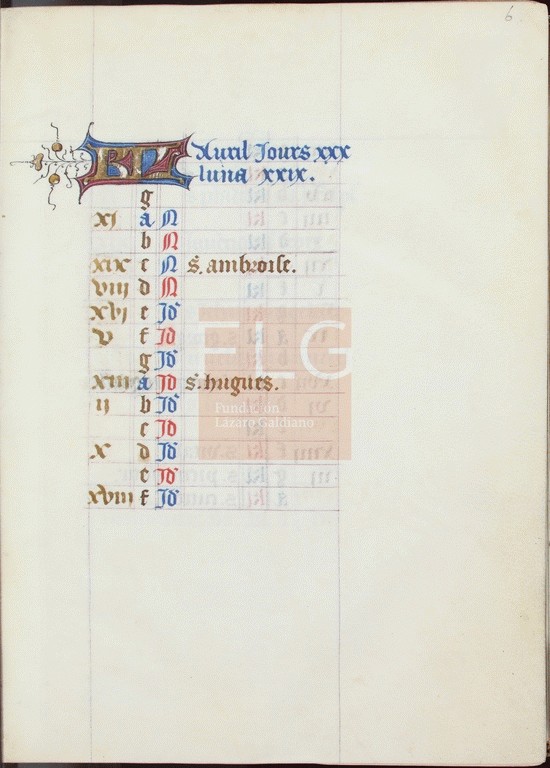 6
KL Auril Jours xxx
luna xxix.
g
xi a N
b N
xix c N s. ambroise.
viii d N
xvi e Id
v f Id
g Id
xiii a Id s. hugues.
ii b Id
c Id
x d Id
e Id
xviii f Id
FLG
Fundación
Lázaro Galdiano